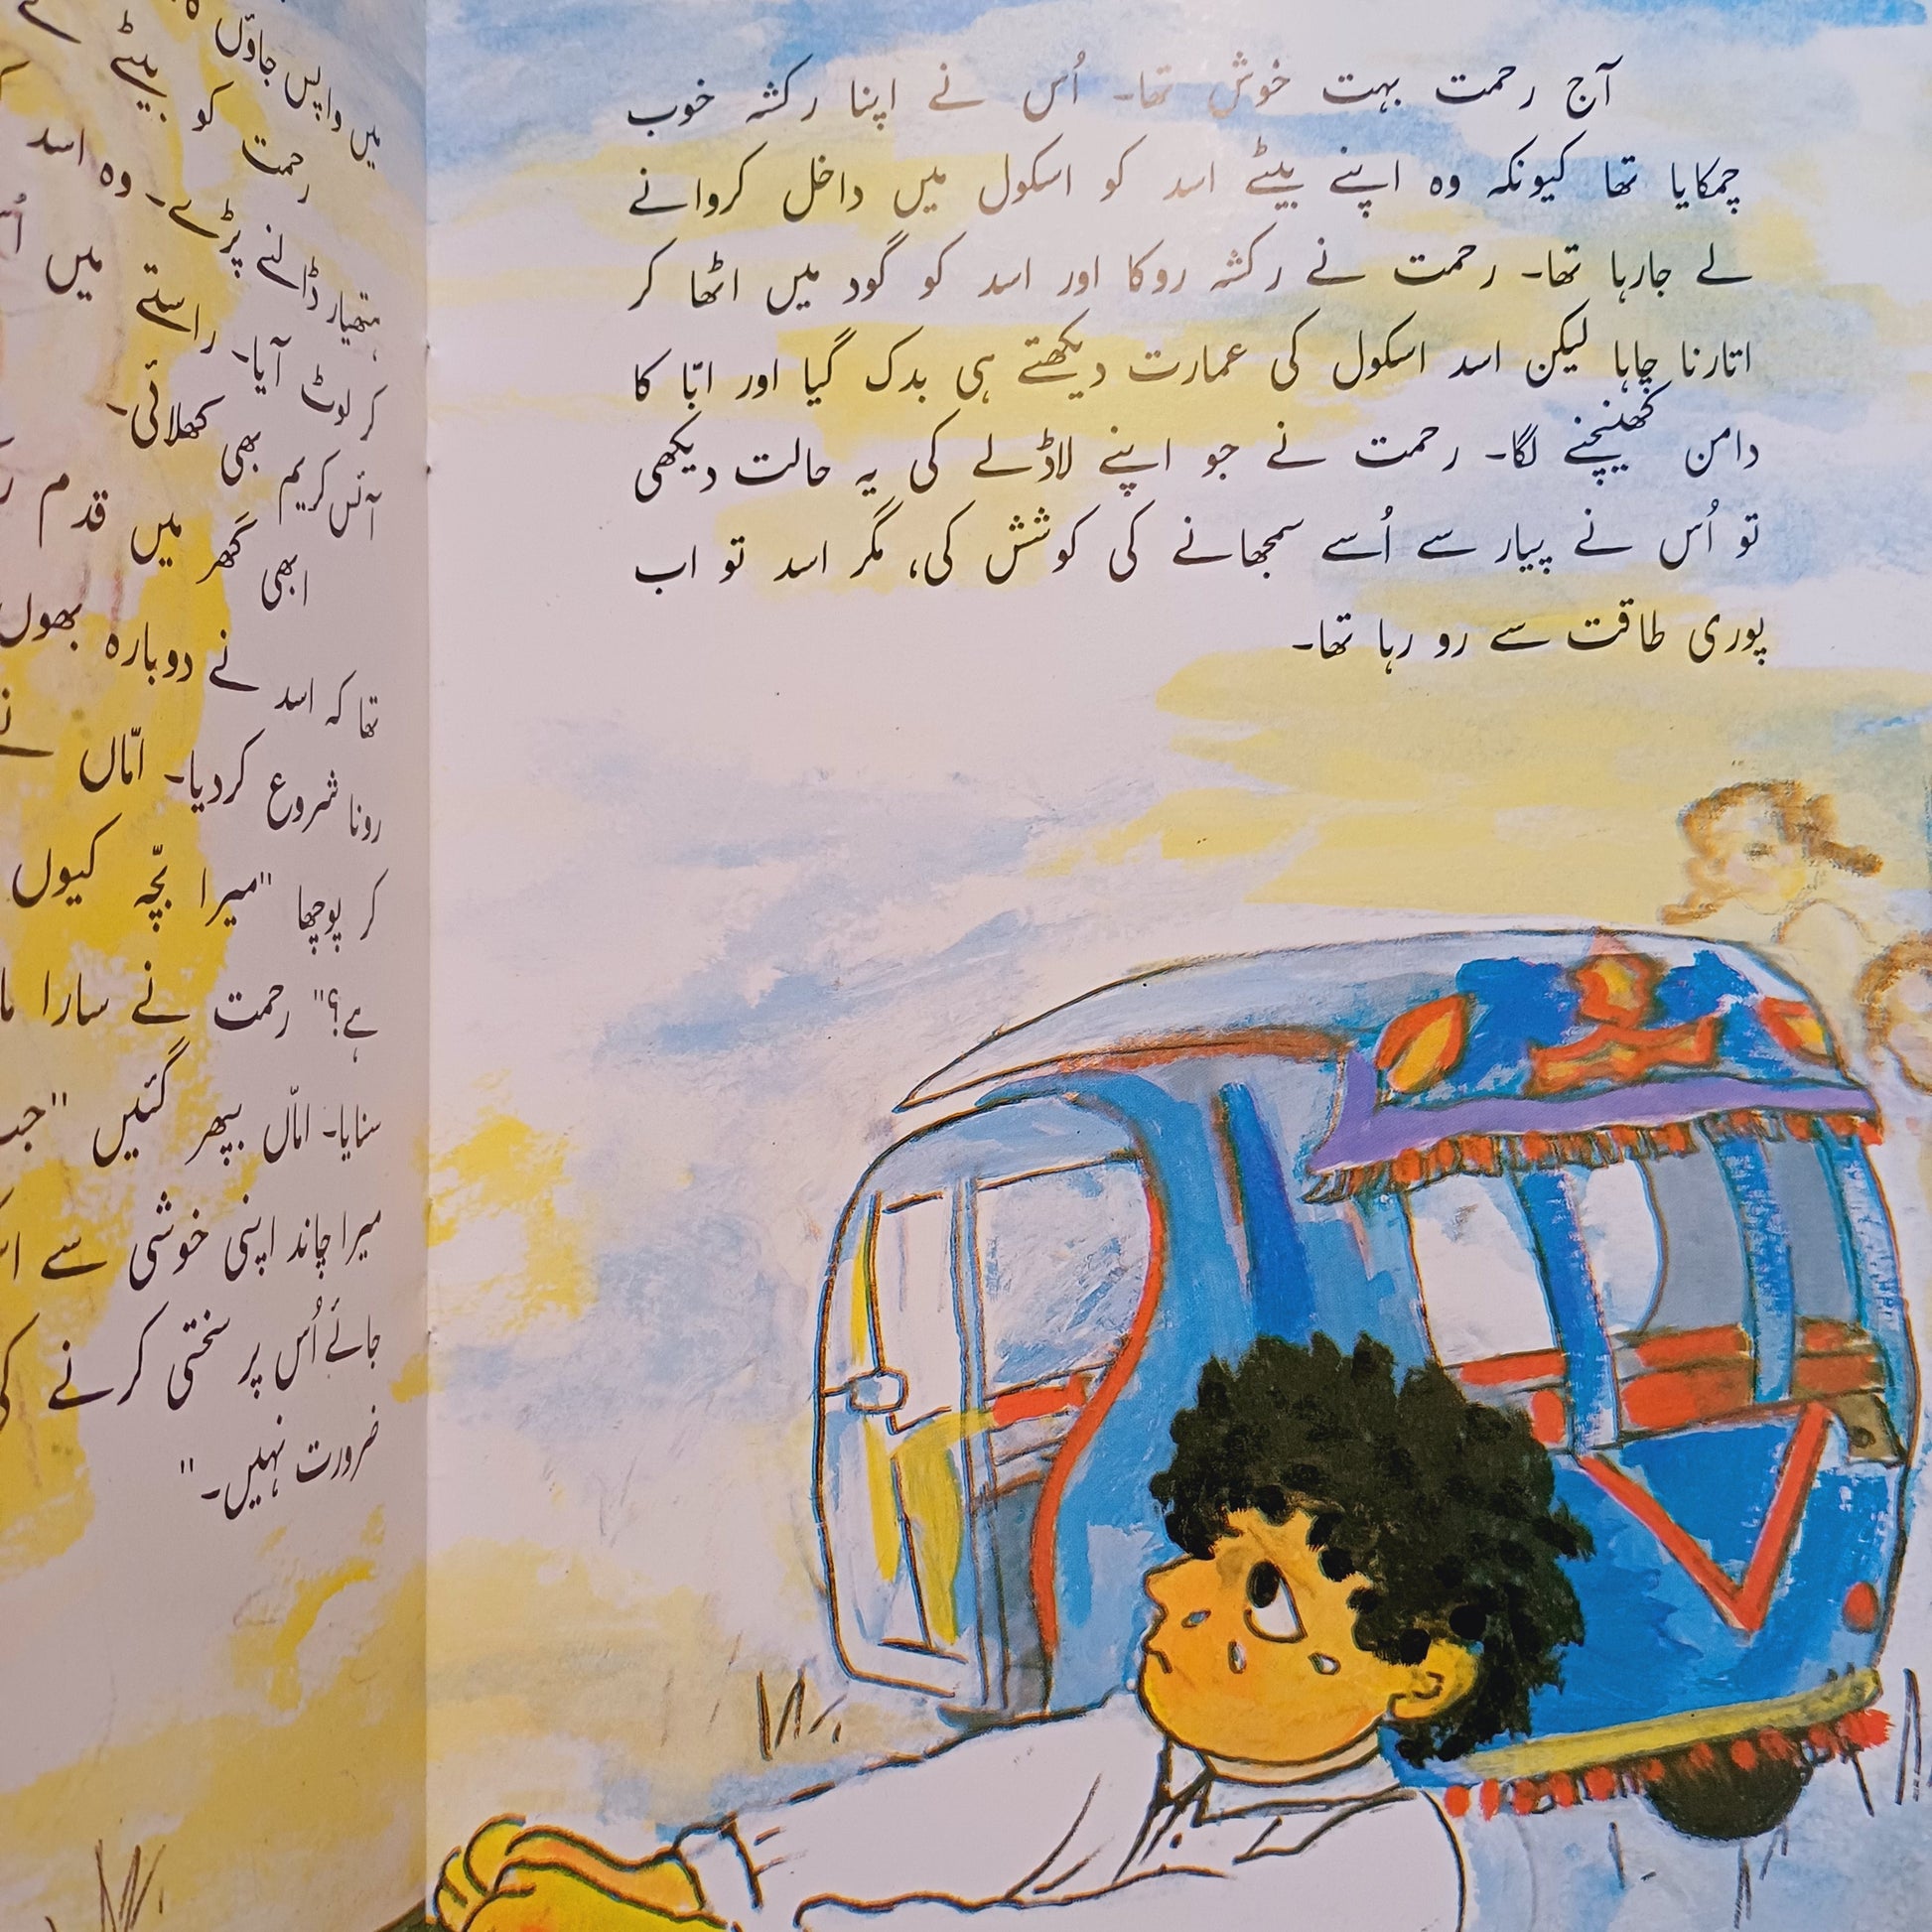 آج رحمت بہت خوش تھا۔ اُس نے اپنا رکشہ خوب
چمکایا تھا کیونکہ وہ اپنے بیٹے اسد کو اسکول میں داخل کروانے
لے جارہا تھا۔ رحمت نے رکشہ روکا اور اسد کو گود میں اٹھا کر
اتارنا چاہا لیکن اسد اسکول کی عمارت دیکھتے ہی بدک گیا اور ابّا کا
دامن کھینچنے لگا۔ رحمت نے جو اپنے لاڈلے کی یہ حالت دیکھی
تو اُس نے پیار سے اُسے سمجھانے کی کوشش کی، مگر اسد تو اب
پوری طاقت سے رو رہا تھا۔
میں واپس جاؤں
رحمت کو بیٹے
ہتھیار ڈالنے پڑے۔ وہ اسد
کر لوٹ آیا۔ راستے میں
آئس کریم بھی کھلائی۔
ابھی گھر میں قدم
تھا کہ اسد نے دوبارہ بھول
رونا شروع کردیا۔ امّاں نے
کر پوچھا "میرا بچّہ کیوں
ہے؟" رحمت نے سارا
سنایا۔ امّاں بپھر گئیں "جب
میرا چاند اپنی خوشی سے
جائے اُس پر سختی کرنے کی
ضرورت نہیں۔"